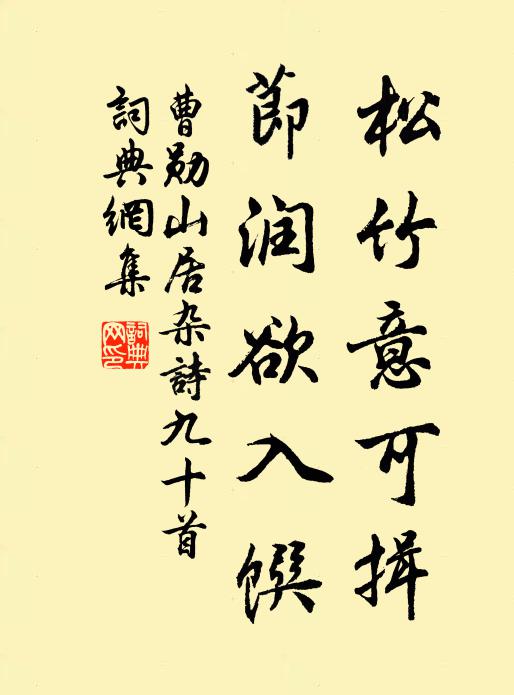 松竹意可揖
節润欲入饌
曹勋山居杂詩九十首
詞典網集
詞典
网印